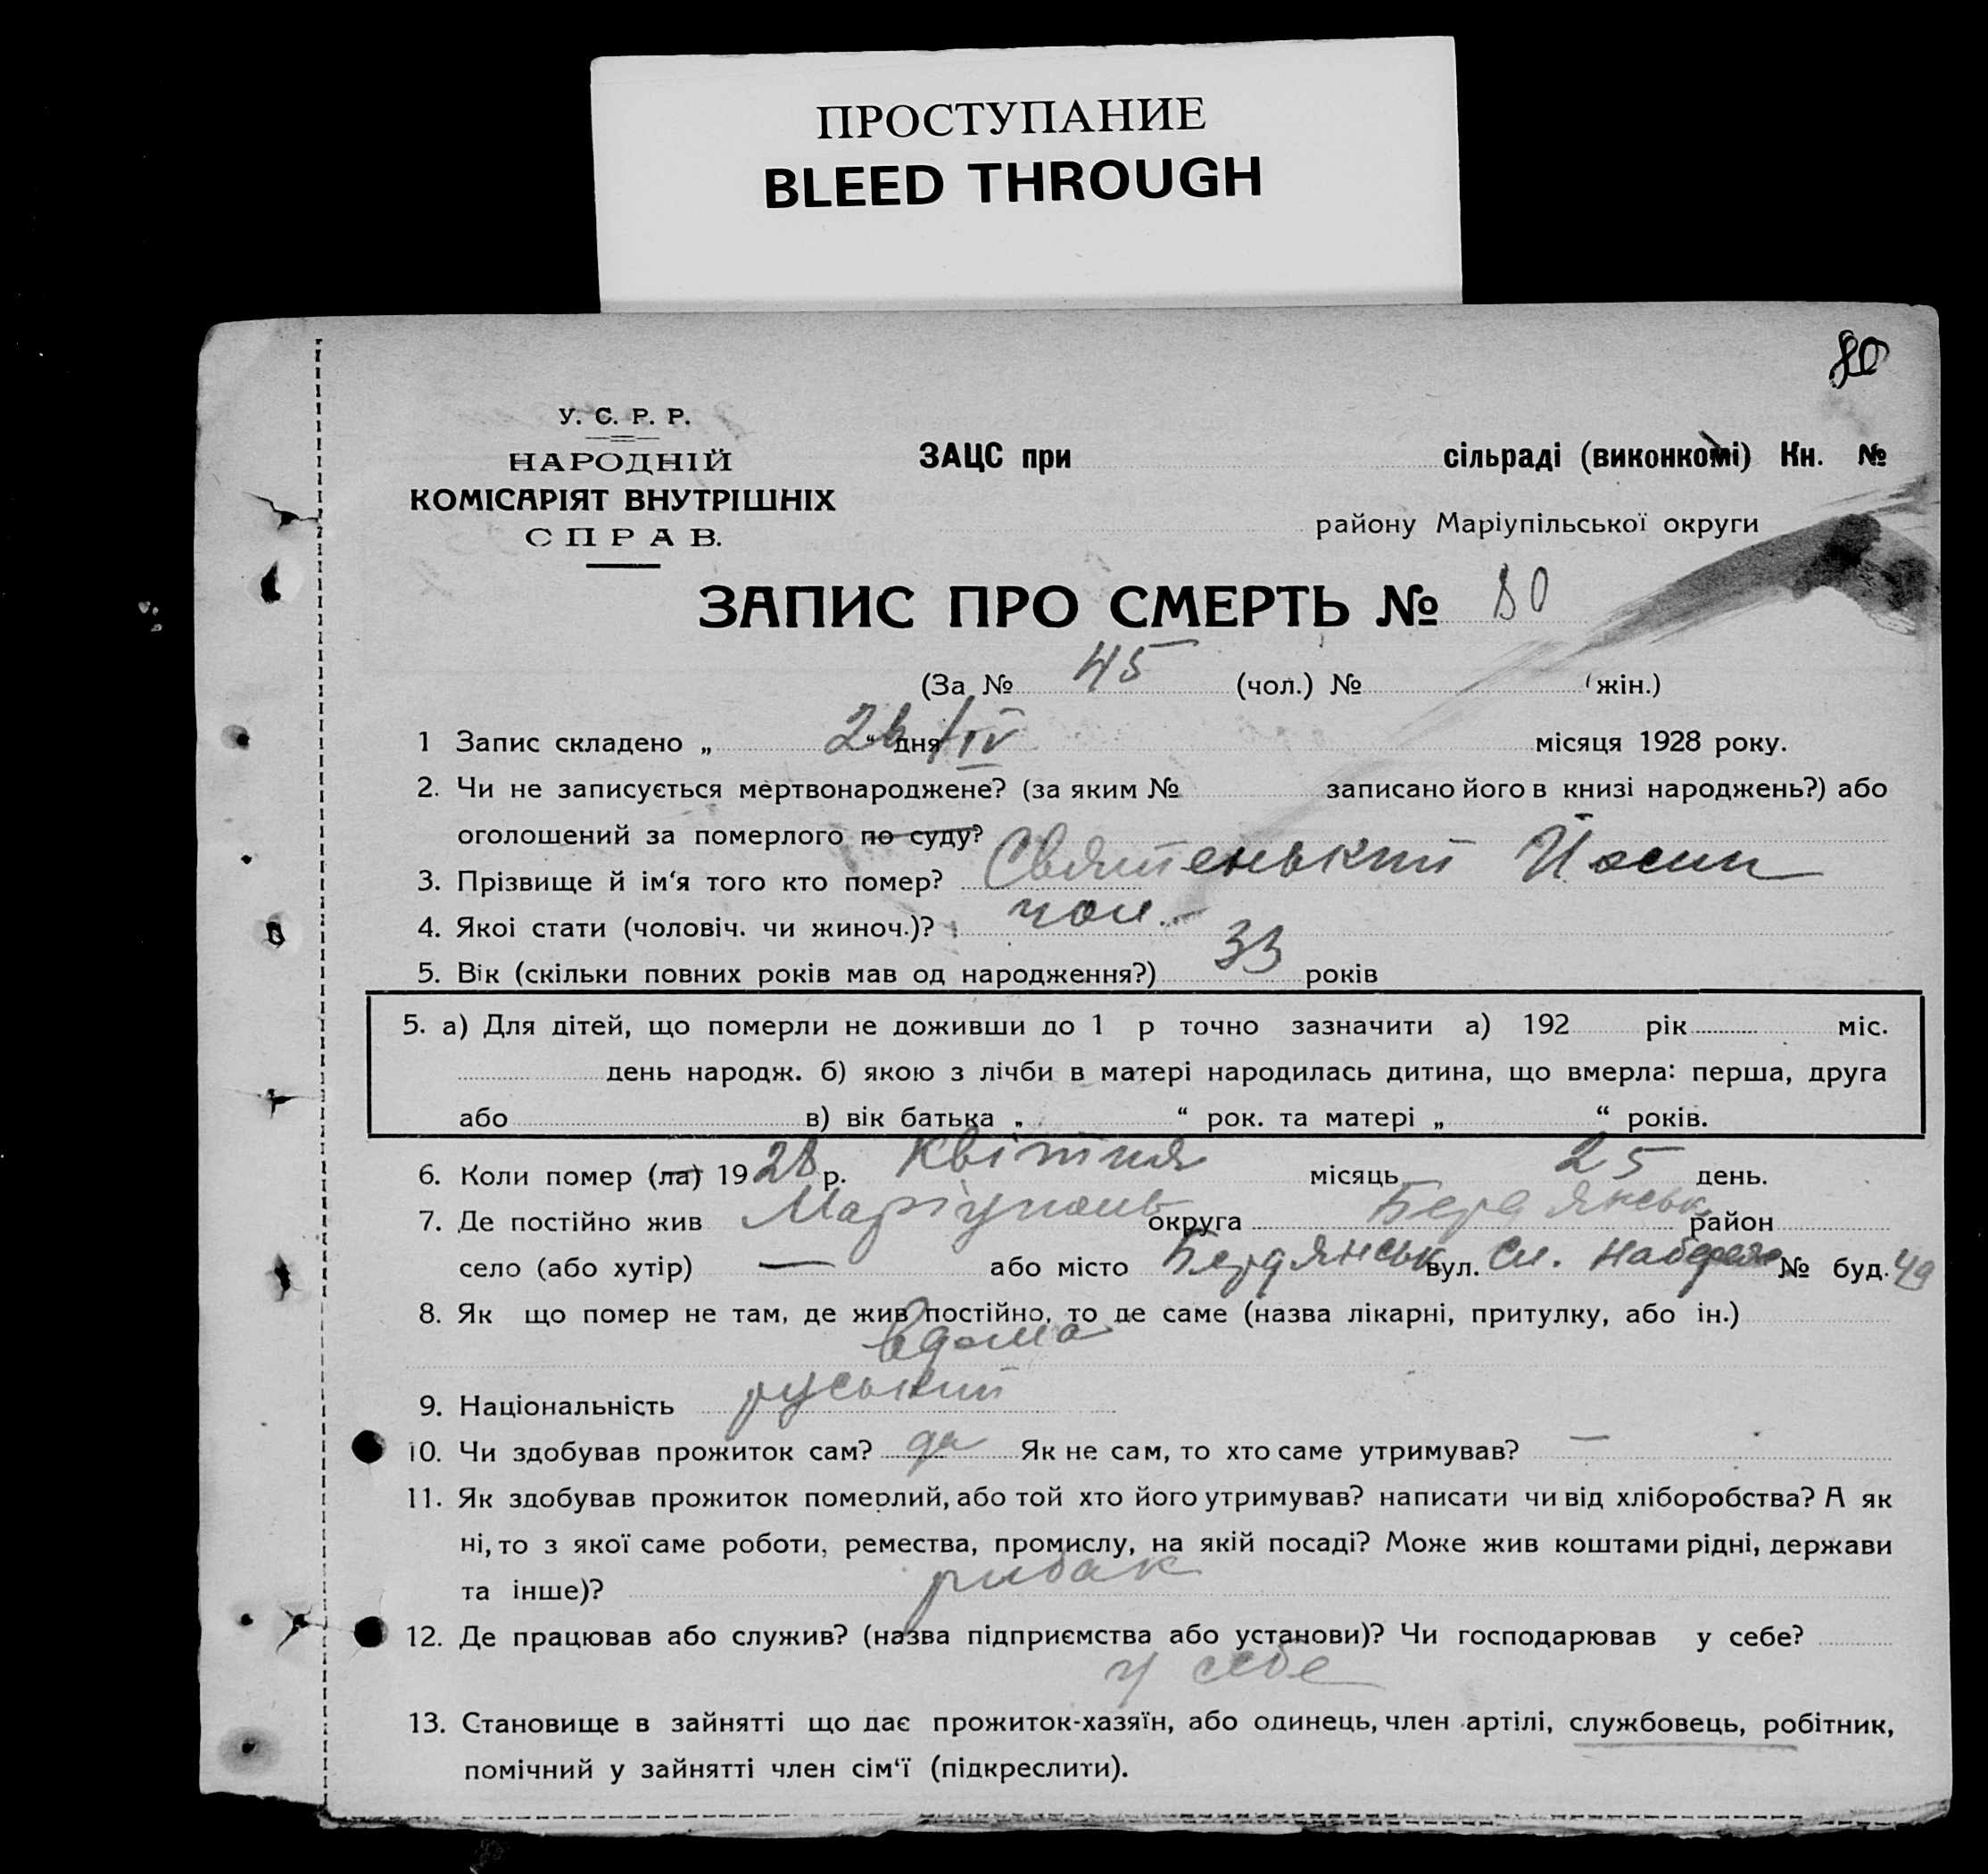 ПРОСТУПАНИЕ
BLEED THROUGH
80
У. С. Р. Р.
НАРОДНІЙ
КОМІСАРІЯТ ВНУТРІШНІХ
СПРАВ.
ЗАЦС при сільраді (виконкомі) Кн. №
району Маріупільської округи
ЗАПИС ПРО СМЕРТЬ № 80
(За № 45 (чол.) № (жін.)
1 Запис складено „ 26 “ дня /IV місяця 1928 року.
2. Чи не записується мертвонароджене? (за яким № записано його в книзі народжень?) або
оголошений за померлого по суду?
3. Прізвище й ім‘я того кто помер? Святенький Йосип
4. Якоі стати (чоловіч. чи жиноч.)? чол.
5. Вік (скільки повних років мав од народження?) 33 років
5. а) Для дітей, що померли не доживши до 1 р точно зазначити а) 192 рік міс.
день народж. б) якою з лічби в матері народилась дитина, що вмерла: перша, друга
або в) вік батька „ “ рок. та матері „ “ років.
6. Коли помер (ла) 1928 р. Квітня місяць 25 день.
7. Де постійно жив Маріуполь округа Бердянськ район
село (або хутір) — або місто Бердянськ вул. Сл. Набереж № буд. 49
8. Як що помер не там, де жив постійно, то де саме (назва лікарні, притулку, або ін.)
вдома
9. Національність руський
10. Чи здобував прожиток сам? да Як не сам, то хто саме утримував? —
11. Як здобував прожиток померлий, або той хто його утримував? написати чи від хліборобства? А як
ні, то з якої саме роботи, ремества, промислу, на якій посаді? Може жив коштами рідні, держави
та інше)? рибак
12. Де працював або служив? (назва підприємства або установи)? Чи господарював у себе?
у себе
13. Становище в зайнятті що дає прожиток-хазяїн, або одинець, член артілі, службовець, робітник,
помічний у зайнятті член сім‘ї (підкреслити).